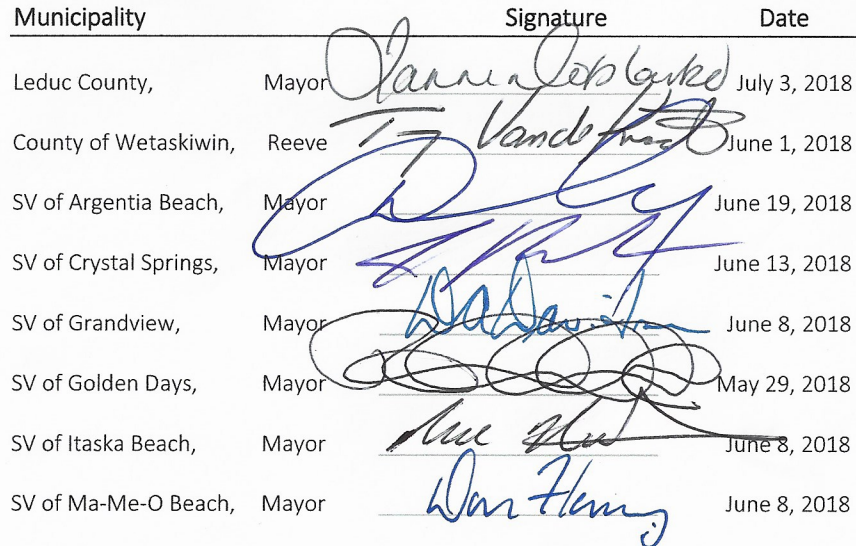 Municipality Signature Date
Leduc County, Mayor July 3, 2018
County of Wetaskiwin, Reeve June 1, 2018
SV of Argentia Beach, Mayor June 19, 2018
SV of Crystal Springs, Mayor June 13, 2018
SV of Grandview, Mayor D A Davidson June 8, 2018
SV of Golden Days, Mayor May 29, 2018
SV of Itaska Beach, Mayor June 8, 2018
SV of Ma-Me-O Beach, Mayor Don Fleming June 8, 2018